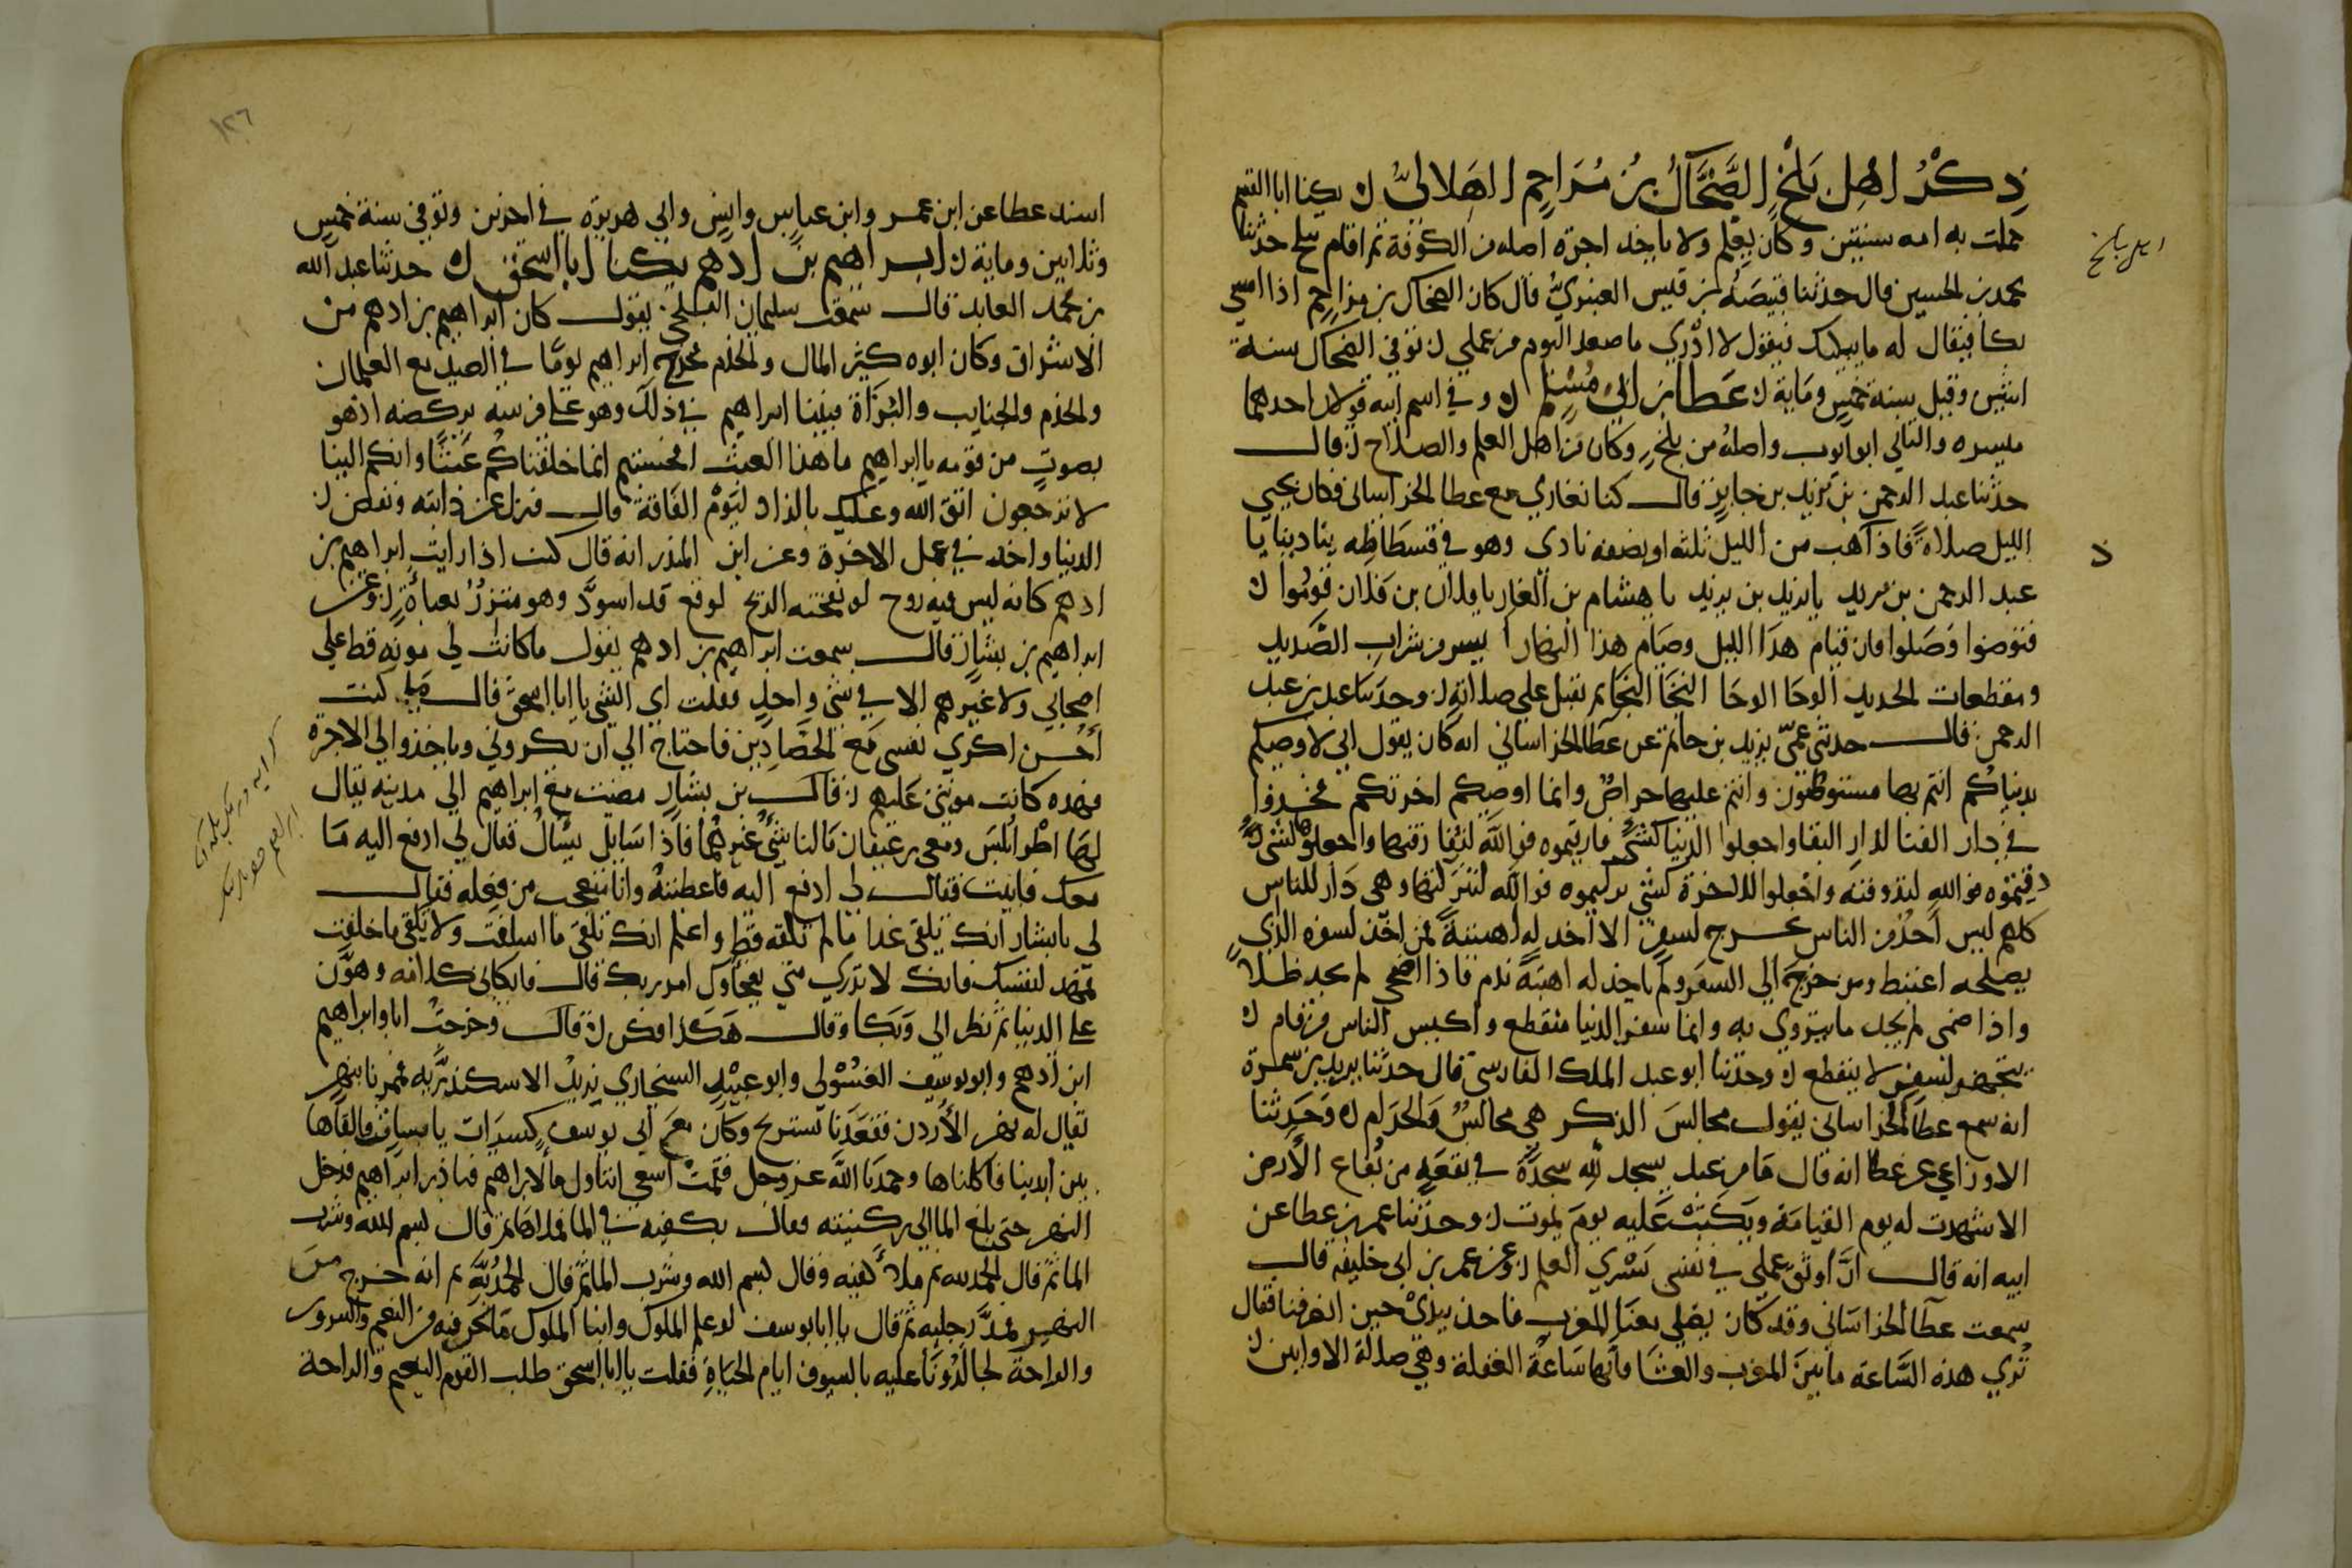 ذِكْرُ اهْلِ بَلْخٍ الضَّحَّاكُ بنُ مُزَاحِمٍ الهِلاليُّ ن يكنا ابا القسم
حملت به امه سنتين وكان يعلم ولا ياخذ اجرة اصله من الكوفة ثم اقام ببلخ حدثنا
محمد بن الحسين قال حدثنا قبيصة بن قيس العنبريُّ قال كان الضحاك بن مزاحم اذا امسى
بكا فيقال له ما يبكيك فيقول لا ادري ما صعد اليوم من عملي ن توفي الضحاك سنة
اثنين وقيل سنة خمس وماية ن عَطا بن ابي مُسْلم ن وفي اسم ابيه قولان احدهما
ميسره والثاني ابو ايوب واصله من بلخ وكان من اهل العلم والصلاح ن قال
حدثنا عبد الرحمن بن يزيد بن جابر قال كنا نغازي مع عطا الخراساني فكان يحيي
الليل صلاةً فاذا ذهب من الليل ثلثه او نصفه نادى وهو في فسطاطه ينادينا يا
عبد الرحمن بن يزيد يا يزيد بن يزيد يا هشام بن الغاز يا فلان بن فلان قوموا ن
فتوضوا وصلوا فان قيام هذا الليل وصيام هذا النهار ايسر من شراب الصديد
ومقطعات الحديد الوحا الوحا النجا النجا ثم تقبل على صلاته ن وحدثنا عبد بن عبد
الرحمن قال حدثني عمّي يزيد بن حاتم عن عطا الخراساني انه كان يقول اني لا اوصيكم
بدنياكم انتم بها مستوصون وانتم عليها حراص وانما اوصيكم اخرتكم فخذوا
في دار الفنا لدار البقا واجعلوا الدنيا كشي فارقتموه فوالله لتفارقنها واجعلوا الموت كشي
ذقتموه فوالله لتذوقنه واجعلوا الاخرة كشي نزلتموه فوالله لتنزلنها وهي دار للناس
كلهم ليس احدٌ من الناس يخرج لسفر الا اخذ له اهبته فمن اخذ لسفره الذي
يصلحه اغتبط ومن خرج الى السفر ولم ياخذ له اهبته ندم فاذا اضحى لم يجد ظلا
واذا ضمى لم يجد ما يتروي به وانما سفر الدنيا منقطع واكيس الناس من قام ن
يتجهز لسفر لا ينقطع ن وحدثنا ابو عبد الملك الفارسي قال حدثنا يزيد بن سمرة
انه سمع عطا الخراساني يقول مجالس الذكر هي مجالس الحلال والحرام ن وحدثنا
الاوزاعي عن عطا انه قال ما من عبد يسجد لله سجدة في بقعة من بقاع الارض
الا شهدت له يوم القيامة وبكت عليه يوم يموت ن وحدثنا عمر بن عطا عن
ابيه انه قال انَّ اوثق عملي في نفسي نشري العلم ن وعن عمر بن ابي خليفة قال
سمعت عطا الخراساني وقد كان يصلي معنا المغرب فاخذ بيديْ حين انصرفنا فقال
تُري هذه الساعة ما بين المغرب والعشا فانها ساعة الغفلة وهي صلاة الاوابين ن
اهل بلخ
د
١٢٦
اسند عطا عن ابن عمر وابن عباس وانس وابي هريرة في اخرين وتوفي سنة خمس
وثلاثين وماية ن ابراهيم بن ادهم يكنا ابا اسحق ن حدثنا عبد الله
بن محمد العابد قال سمعت سليمان البلخي يقول كان ابراهيم بن ادهم من
الاشراف وكان ابوه كثير المال والخدم فخرج ابراهيم يومًا في الصيد مع الغلمان
والخدم والجنايب والبُزاة فبينا ابراهيم في ذلك وهو على فرسه يركضه اذ هو
بصوتٍ من فوقه يا ابراهيم ما هذا العبث افحسبتم انما خلقناكم عبثا وانكم الينا
لا ترجعون اتق الله وعليك بالزاد ليوم الفاقة قال فنزل عن دابته ورفض ن
الدنيا واخذ في عمل الاخرة وعن ابن المنذر انه قال كنت اذا رايت ابراهيم بن
ادهم كانه ليس فيه روح لو نفخته الريح لوقع قد اسودَّ وهو متزرٌ بعباءةٍ ن وعن
ابراهيم بن بشار قال سمعت ابراهيم بن ادهم يقول ما كانت لي مونه قط على
اصحابي ولا غيرهم الا في شي واحد فقلت اي الشي يا ابا اسحق قال ما كنت
أُحسن اكري نفسي مع الحصادين فاحتاج الى ان يكروني وياخذوا لي الاجرة
فهذه كانت مونتي عليهم ن قال بن بشار مضيت مع ابراهيم الى مدينة يقال
لها اطْرابُلس ومعي رغيفان ما لنا شيٌ غيرهما فاذا سايل يسالُ فقال لي ادفع اليه ما
معك فابيت فقال لي ادفع اليه فاعطيته وانا متعجب من فعله فقال
لي يا بشار انك تلقى غدا ما لم تلقه قط واعلم انك تلقى ما اسلفت ولا تلقى ما خلفت
فمهد لنفسك فانك لا تدري متى يفجأك امر ربك قال فابكاني كلامه وهوّن
علي الدنيا ثم نظر الي وبكا وقال هكذا فكن ن قال وخرجتُ انا وابراهيم
ابن ادهم وابو يوسف الغسولي وابو عبيد السنجاري نريدُ الاسكندريّة فمررنا بنهر
يقال له نهر الأردن فقعدنا نستريح وكان مع ابي يوسف كسيرات يابسات فالقاها
بين ايدينا فاكلناها وحمدنا الله عز وجل فقمت اسعى اتناول ما لابراهيم فبادر ابراهيم فدخل
النهر حتى بلغ الما الى ركبتيه فقال بكفيه في الما فملاهما ثم قال بسم الله وشرب
الما ثم قال الحمد لله ثم ملأ كفيه وقال بسم الله وشرب الما ثم قال الحمد لله ثم انه خرج من
النهر فمدَّ رجليه ثم قال يا ابا يوسف لو علم الملوك وابنا الملوك ما نحن فيه من النعيم والسرور
والراحة لجالدُونا عليه بالسيوف ايام الحياة فقلت يا ابا اسحق طلب القوم النعيم والراحة